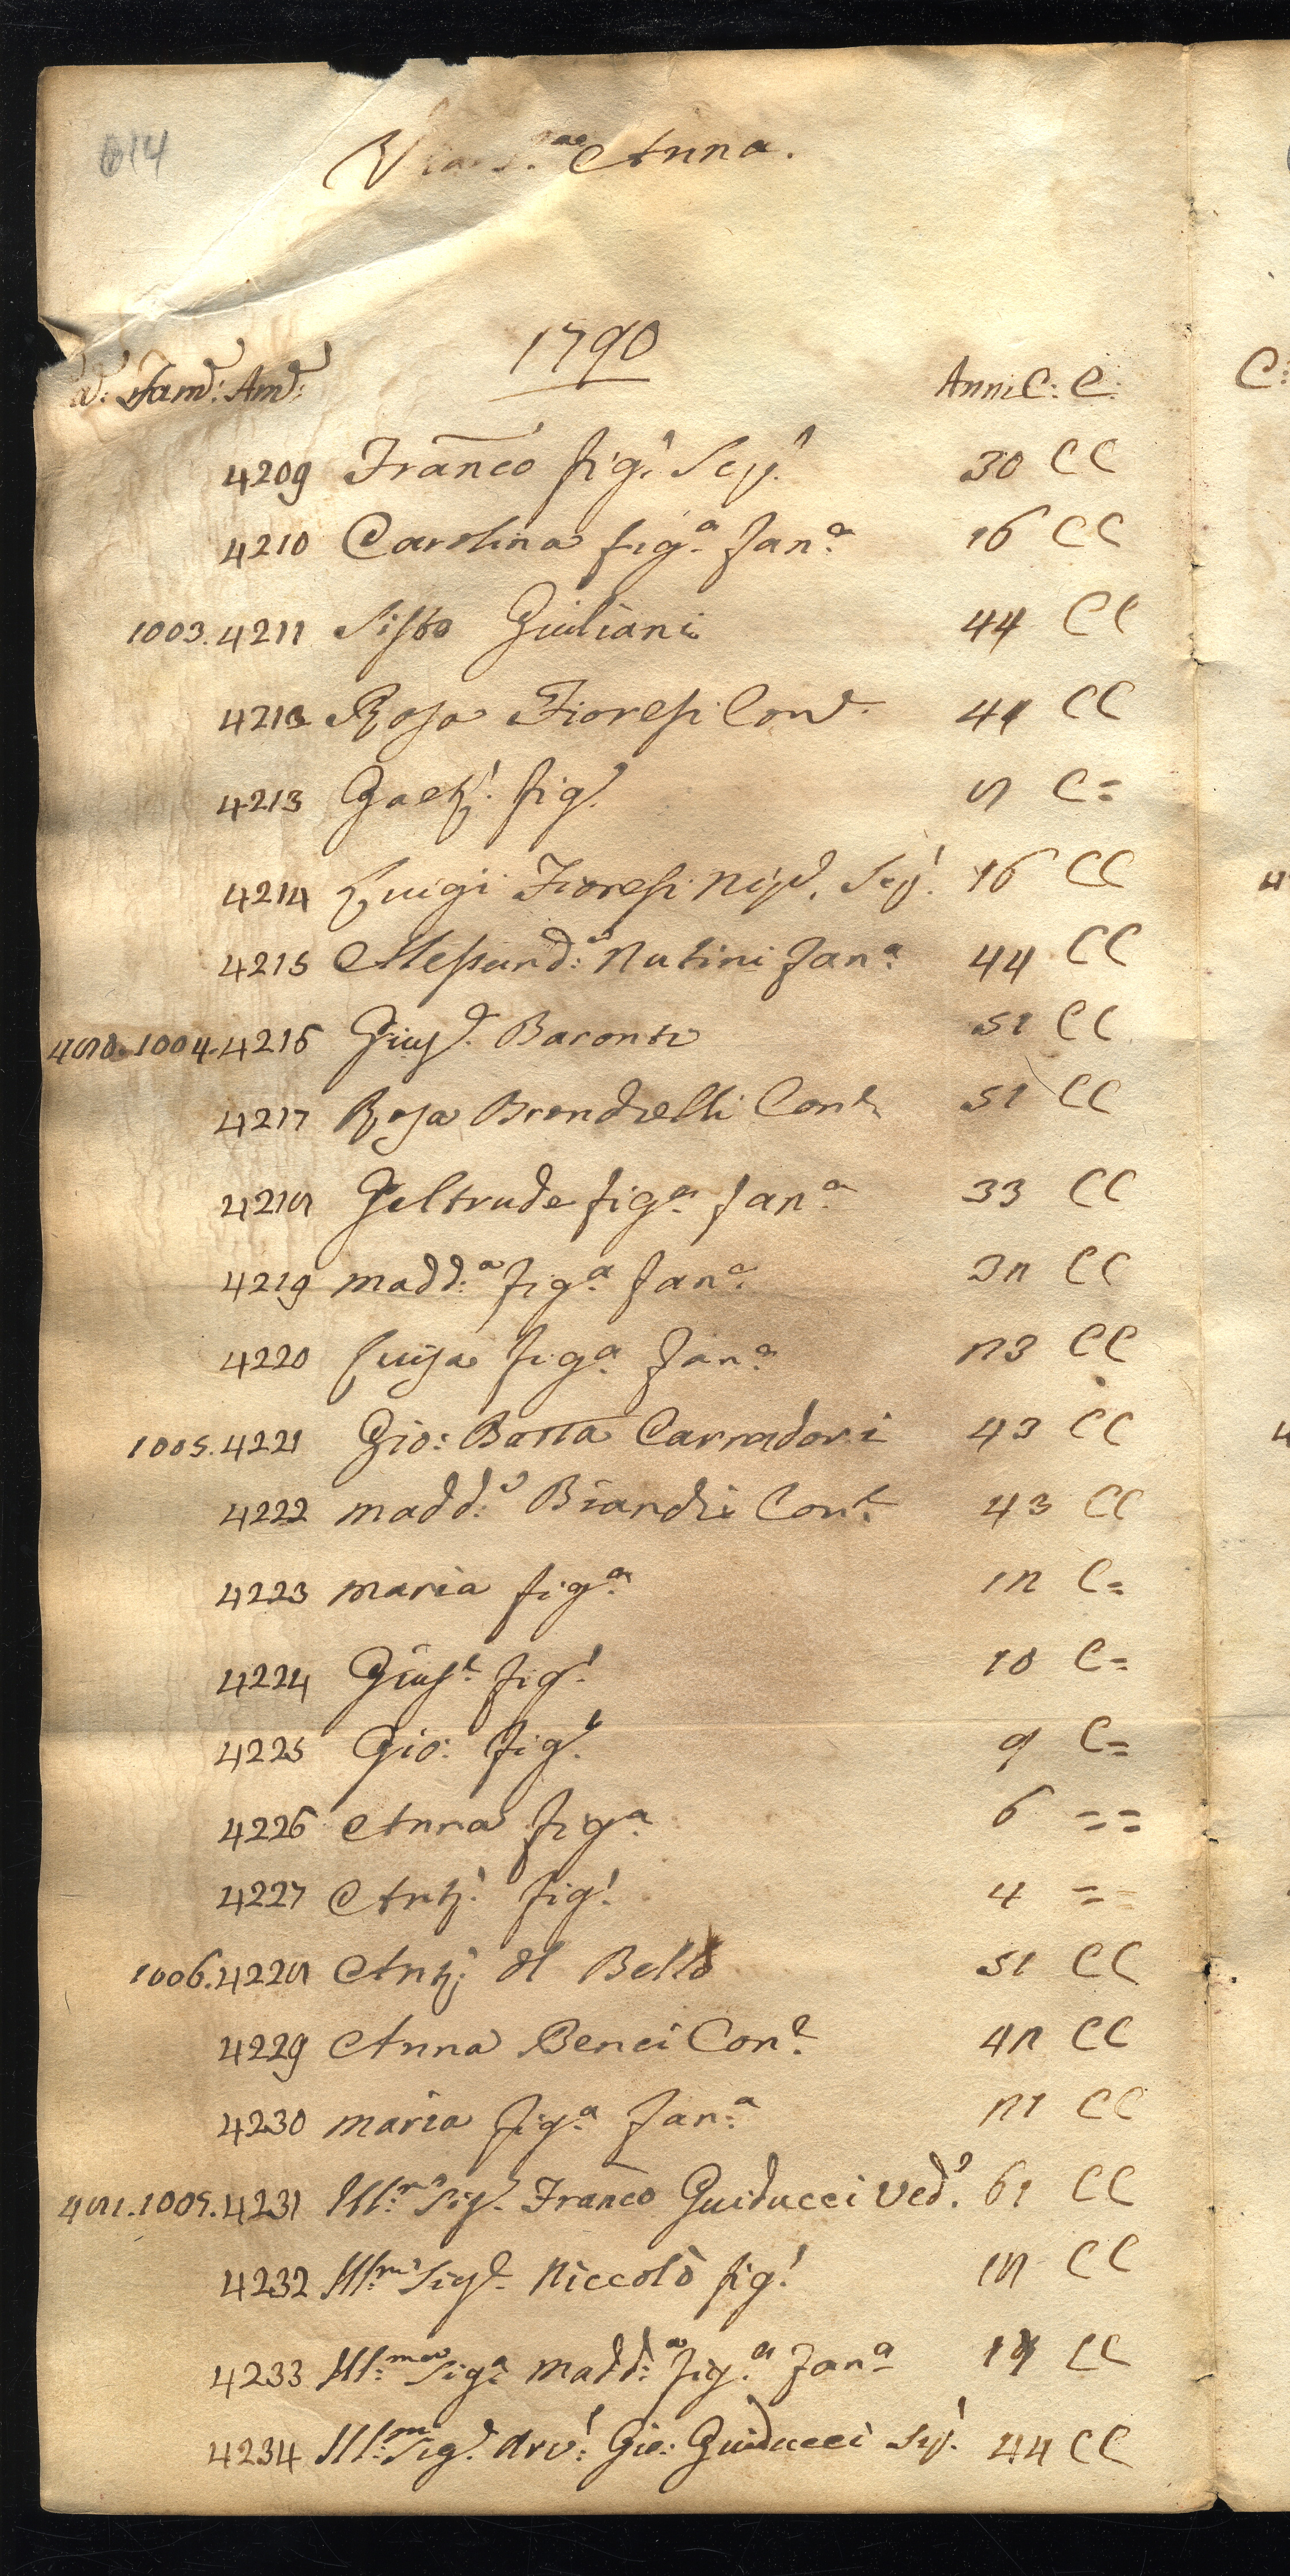 014
Via S.ª Anna.
1790
Fam: Am: Anni C: C:
4209 Franco fig. Scp. 30 CC
4210 Carolina fig.ª fan.ª 16 CC
1003. 4211 Sisto Giuliani 44 CC
4212 Rosa Fioresi Con. 41 CC
4213 Gaet. fig. 8 C=
4214 Luigi Fioresi Nip. Scp. 16 CC
4215 Alessand: Nutini fan.ª 44 CC
480. 1004. 4216 Giusp. Baronti 51 CC
4217 Rosa Brendielli Con. 51 CC
4218 Geltrude fig.ª fan.ª 33 CC
4219 Madd.ª fig.ª fan.ª 32 CC
4220 Luisa fig.ª fan.ª 23 CC
1005. 4221 Gio: Batta Carradori 43 CC
4222 Madd. Con. 43 CC
4223 Maria fig.ª 12 C=
4224 Giusp. fig. 10 C=
4225 Gio: fig. 9 C=
4226 Anna fig.ª 6 = =
4227 Ant. fig. 4 = =
1006. 4228 Ant. del Bello 51 CC
4229 Anna Benci Con. 42 CC
4230 Maria fig.ª fan.ª 21 CC
481. 1007. 4231 Ill.mo Sig. Franco Guiducci Ved. 61 CC
4232 Ill.mo Sig. Niccolò fig. 18 CC
4233 Ill.ma Sig.ª Madd.ª fig.ª fan.ª 17 CC
4234 Ill.mo Sig. Arv: Gio: Guiducci Scp. 44 CC